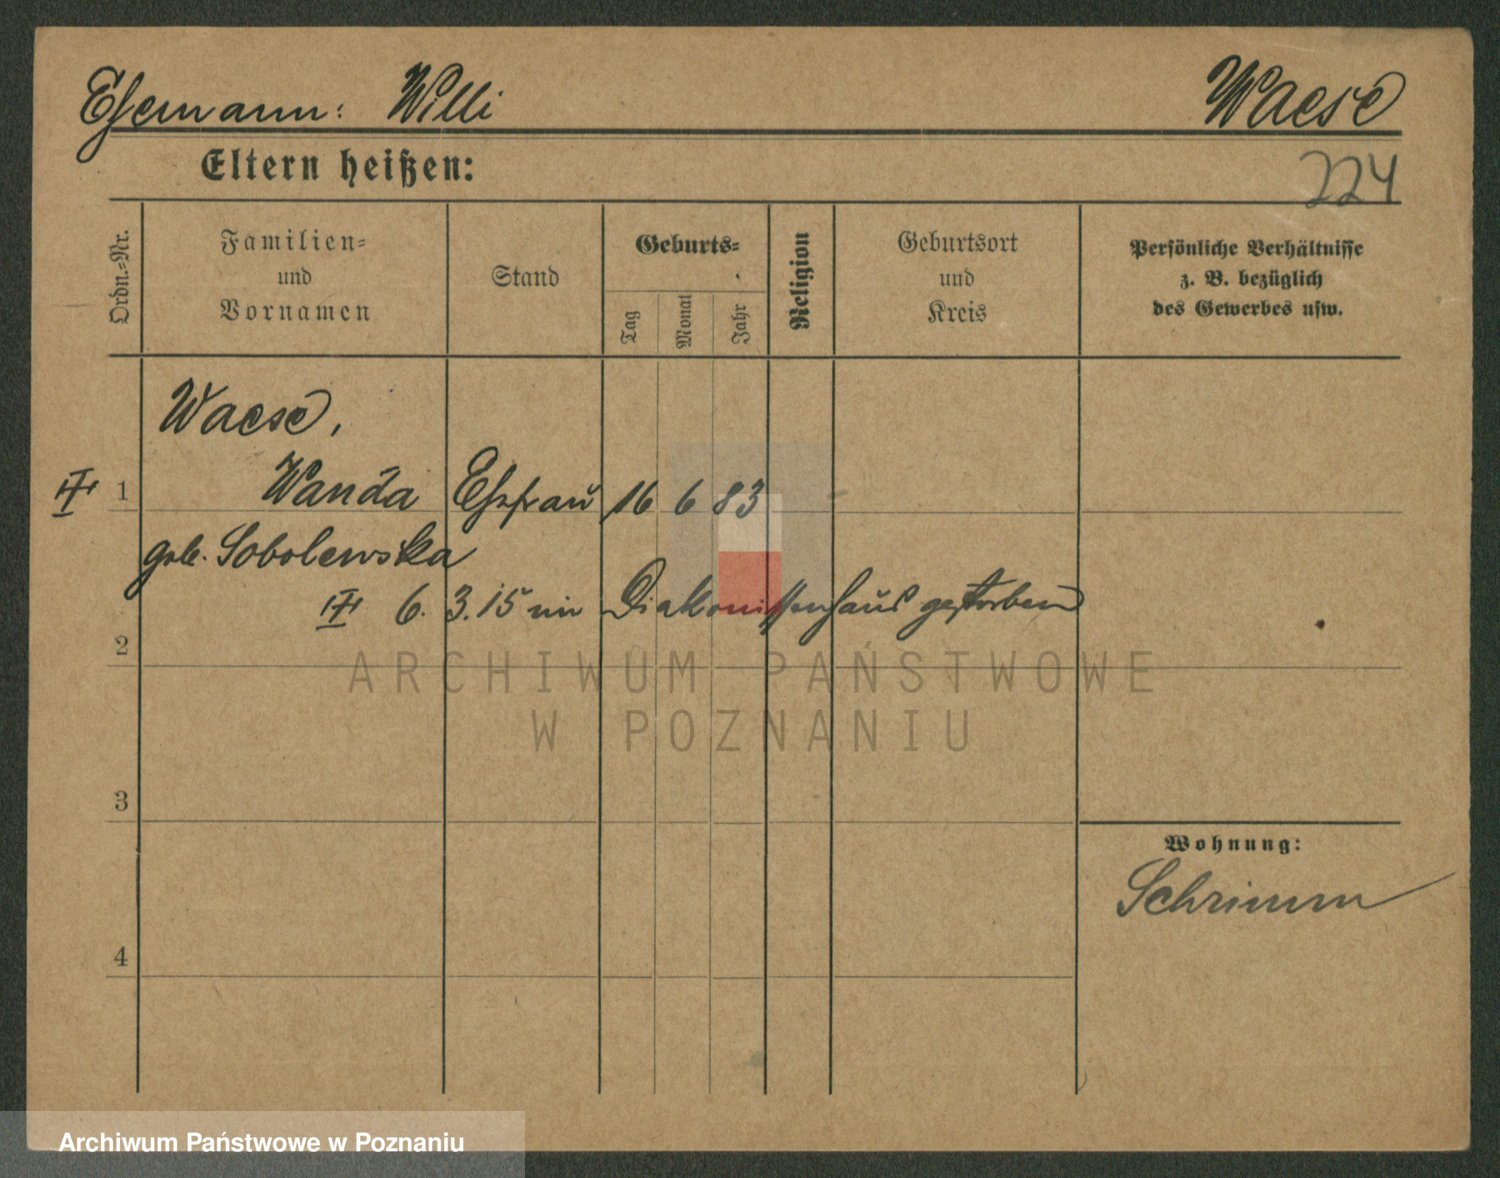 Ehemann: Willi Waese
Eltern heißen:
224
Ordn.=Nr.
Familien=
und
Vornamen
Stand
Geburts=
Tag
Monat
Jahr
Religion
Geburtsort
und
Kreis
Persönliche Verhältnisse
z. B. bezüglich
des Gewerbes usw.
Waese,
1 Wanda Ehefrau 16 6 83
geb. Sobolewska
6. 3. 15 im Diakonissenhaus gestorben
2
ARCHIWUM PAŃSTWOWE
W POZNANIU
3
Wohnung:
Schrimm
4
Archiwum Państwowe w Poznaniu